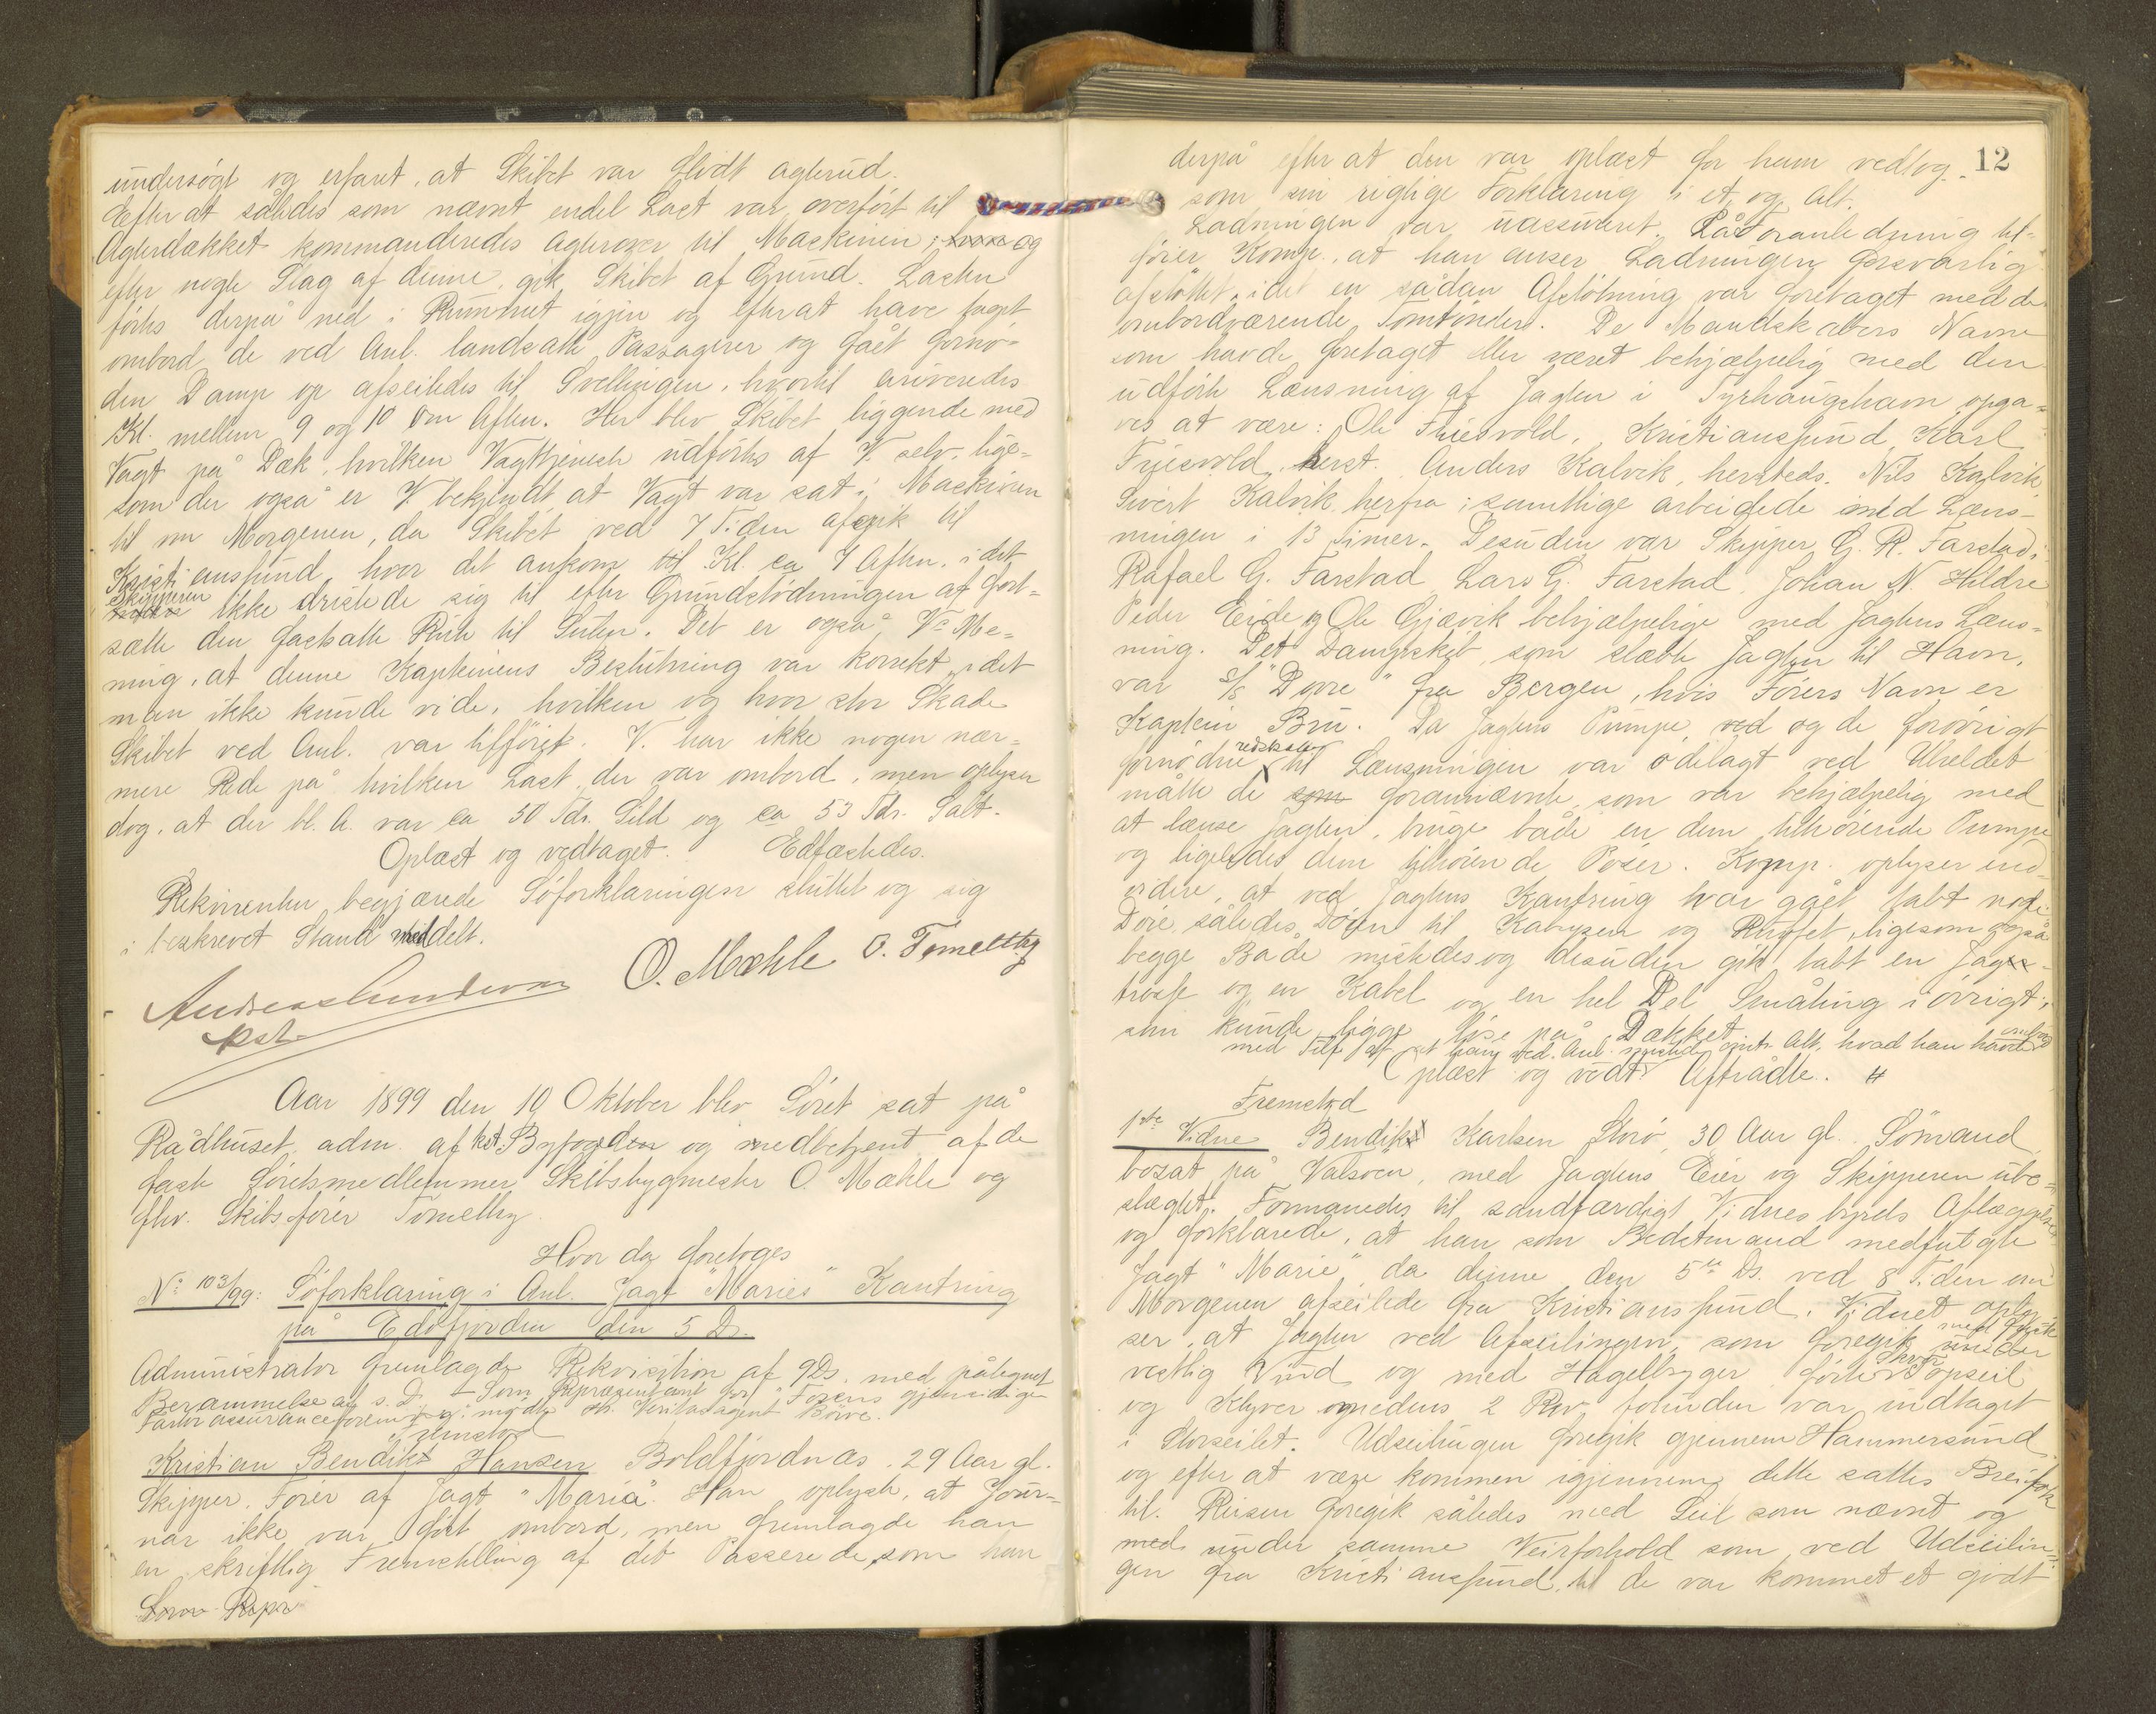 undersøgt og erfaret, at Skibet var flødt agterud.
Efter at således som nævnt endel Last var overført til
Agterdækket kommanderedes agterover til Maskinen, og
efter nogle Slag af denne, gik Skibet af Grund. Lasten
førtes derpå ned i Rummet igjen og efterat have taget
ombord de ved Anl. landsatte Passagerer og fået fornø-
den Damp op afseiledes til Svellingen, hvortil arriveredes
Kl. mellem 9 og 10 om Aften. Her blev Skibet liggende med
Vagt på Dæk, hvilken Vagttjeneste udførtes af V. selv, lige-
som der også er V. bekjendt at Vagt var sat i Maskinen
til om Morgenen, da Skibet ved 7 Tiden afgik til
Kristiansund hvor det ankom til Kl. ca 7 Aften, idet
Skipperen ikke dristede sig til efter Grundstødningen at fort-
sætte den fastsatte Rute til Suten. Det er også Vs Me-
ning, at denne Kapteinens Beslutning var korrekt, idet
man ikke kunde vide, hvilken og hvor stor Skade
Skibet ved Anl. var tilføiet. V. har ikke nogen nær-
mere Rede på hvilken Last der var ombord, men oplyser
dog, at der bl. A. var ca 50 Tdr. Sild og ca 53 Tdr. Salt.
Oplæst og vedtaget. Edfæstedes.
Rekvirenten begjærede Søforklaringen sluttet og sig
i beskrevet Stand meddelt.
O. Mæhle O. Tømelthy
Andreas Gundersen
kst.
Aar 1899 den 10 Oktober blev Søret sat på
Rådhuset adm. af kst. Byfogden og medbetjent af de
faste Søretsmedlemmer Skibsbygmester O. Mæhle og
fhv. Skibsfører Tømelthy
Hvor da foretoges
No 103/99: Søforklaring i Anl. Jagt "Maries" Kantring
på Edøfjorden den 5 Ds.
Administrator fremlagde Rekvisition af 9 Ds. med påtegnet
Berammelse af s. D. - Som Repræsentant for "Fosens gjensidige
Fartøiassuranceforening" mødte Hr. Veritasagent Børve.
Fremstod
Kristian Bendikt Hansen Boldfjordnæs, 29 Aar gl.
Skipper, Fører af Jagt "Maria". Han oplyste, at Jour-
nar ikke var ført ombord, men fremlagde han
en skriftlig Fremstilling af det Passerede, som han
Som Repr
12
derpå efter at den var oplæst for ham vedtog
som sin rigtige Forklaring i et og alt.
Ladningen var uassureret. På Foranledning til-
fører Komp. at han anser Ladningen forsvarlig
afstøttet, idet en sådan Afstøtning var foretaget med de
ombordværende Tomtønder. De Mandskabers Navne
som havde foretaget eller været behjælpelig med den
udførte Lænsning af Jagten i Tyrhaugshavn opga-
ves at være: Ole Friesvold, Kristiansund, Karl
Friesvold, herst. Anders Kalvik, hersteds, Nils Kalvik,
Sivert Kalvik herfra; samtlige arbeidede med Læns-
ningen i 13 Timer. Desuden var Skipper G. R. Farstad,
Rafael G. Farstad Lars G. Farstad, Johan N. Hildre
Peder Eide og Ole Gjævik behjælpelige med Jagtens Læns-
ning. Det Dampskib, som slæbte Jagten til Havn,
var S/S "Dovre" fra Bergen, hvis Førers Navn er
Kaptein Bru. Da Jagtens Pumpe, ved og de forøvrigt
fornødne redskaber til Lænsningen var ødelagt ved Uheldet
måtte de som forannævnte, som var behjælpelig med
at lænse Jagten, bruge både en dem tilhørende Pumpe
og ligeledes dem tilhørende Pøser. Komp. oplyser end-
videre, at ved Jagtens Kantring var gået tabt nogle
Døre, således Døren til Kabyssen og Ruffet, ligesom også
begge Både mistedes og desuden gik tabt en Jag-
trosse og en Kabel og en hel Del Småting iøvrigt,
som kunde ligge løse på Dækket
med Tilf. af at han ved Anl. mistede sint Alt, hvad han havde ombord
Oplæst og vedt. Aftrådte.
Fremstod
1ste Vidne Bendikt Karlsen Storø, 30 Aar gl. Sømand
bosat på Valsøen, med Jagtens Eier og Skipperen ube-
slægtet. Formanedes til sandfærdigt Vidnesbyrds Aflæggelse
og forklarede, at han som Bedstemand medfulgte
Jagt "Marie", da denne den 5te Ds. ved 8 Tiden om
Morgenen afseilede fra Kristiansund. Vidnet oply-
ser, at Jagten ved Afseilingen, som foregik med frisk
vestlig Vind og med Hagelbyger førte Stor Topseil
og Klyver medens 2 Rev forinden var indtaget
i Storseilet. Udseilingen foregik gjennem Hammersund
og efter at være kommen igjennem dette sattes Breifok
til. Reisen foregik således med Seil som nævnt og
med under samme Veirforhold som ved Udseilin-
gen fra Kristiansund, til de var kommet et godt